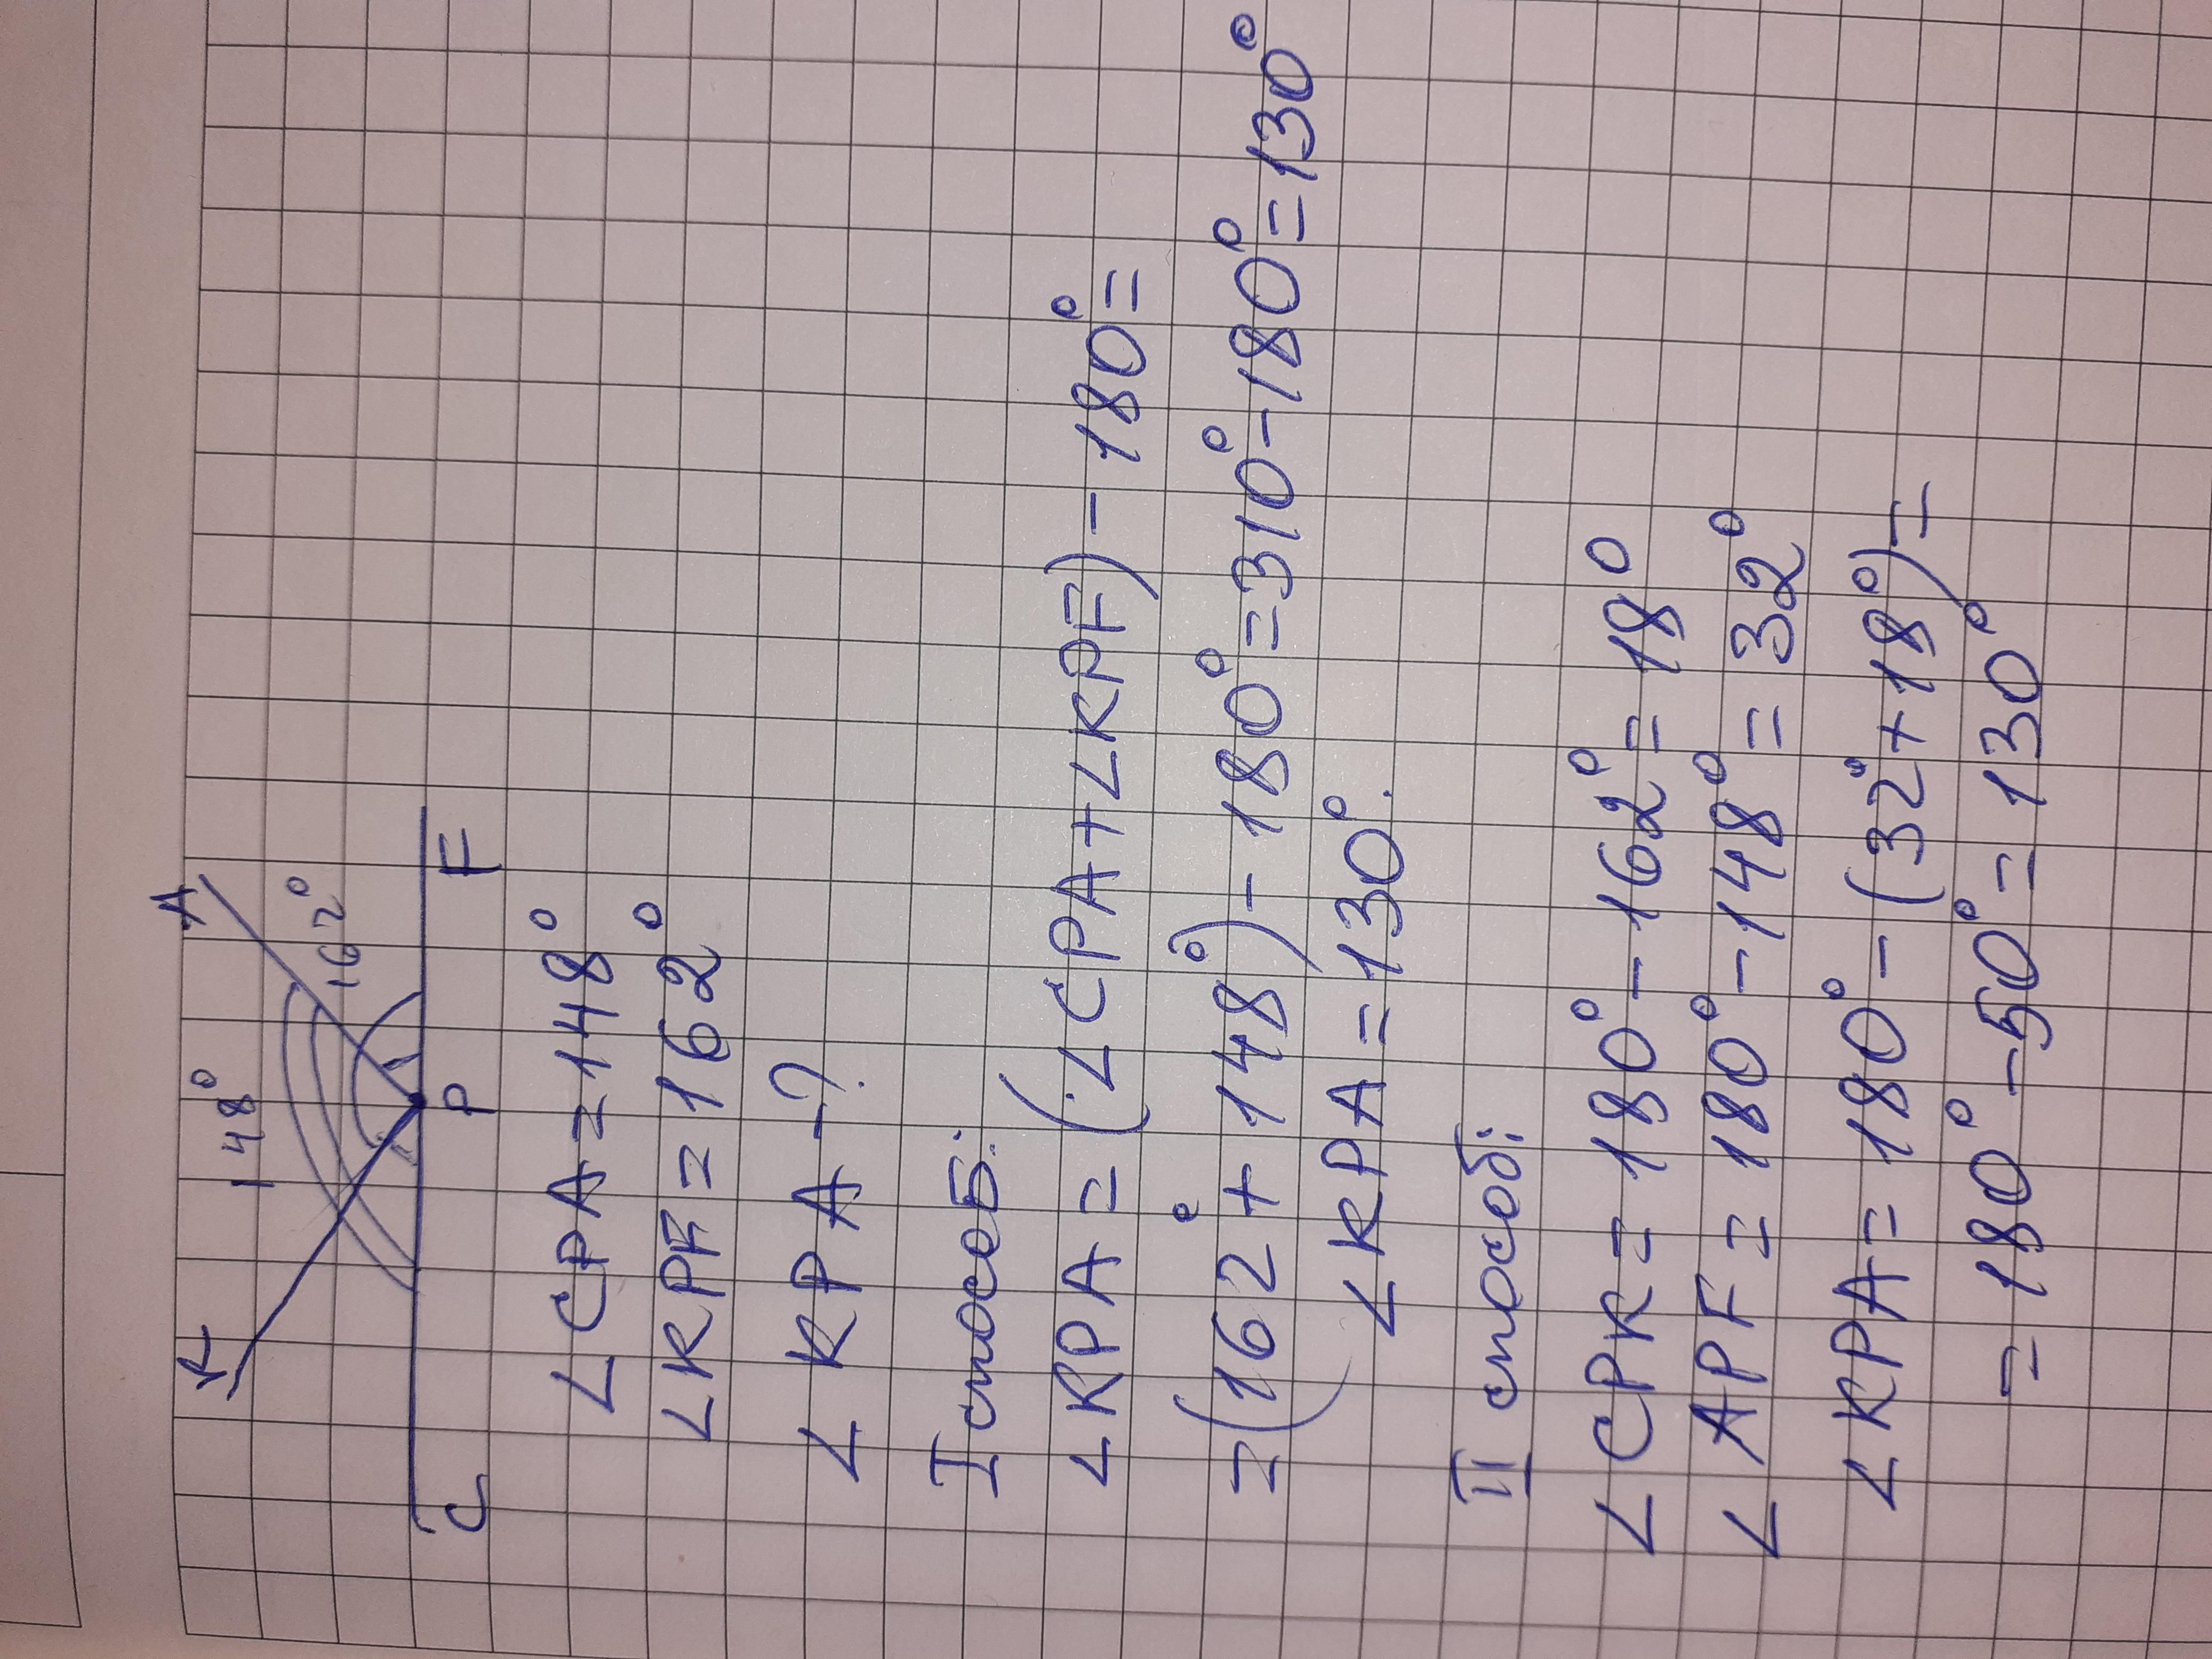 К А
148° 162°
С Р F
∠CPA=148°
∠KPF=162°
∠KPA-?
I способ:
∠KPA=(∠CPA+∠KPF)-180°=
=(162°+148°)-180°=310°-180°=130°
∠KPA=130°.
II способ:
∠CPK=180°-162°=18°
∠APF=180°-148°=32°
∠KPA=180°-(32°+18°)=
=180°-50°=130°